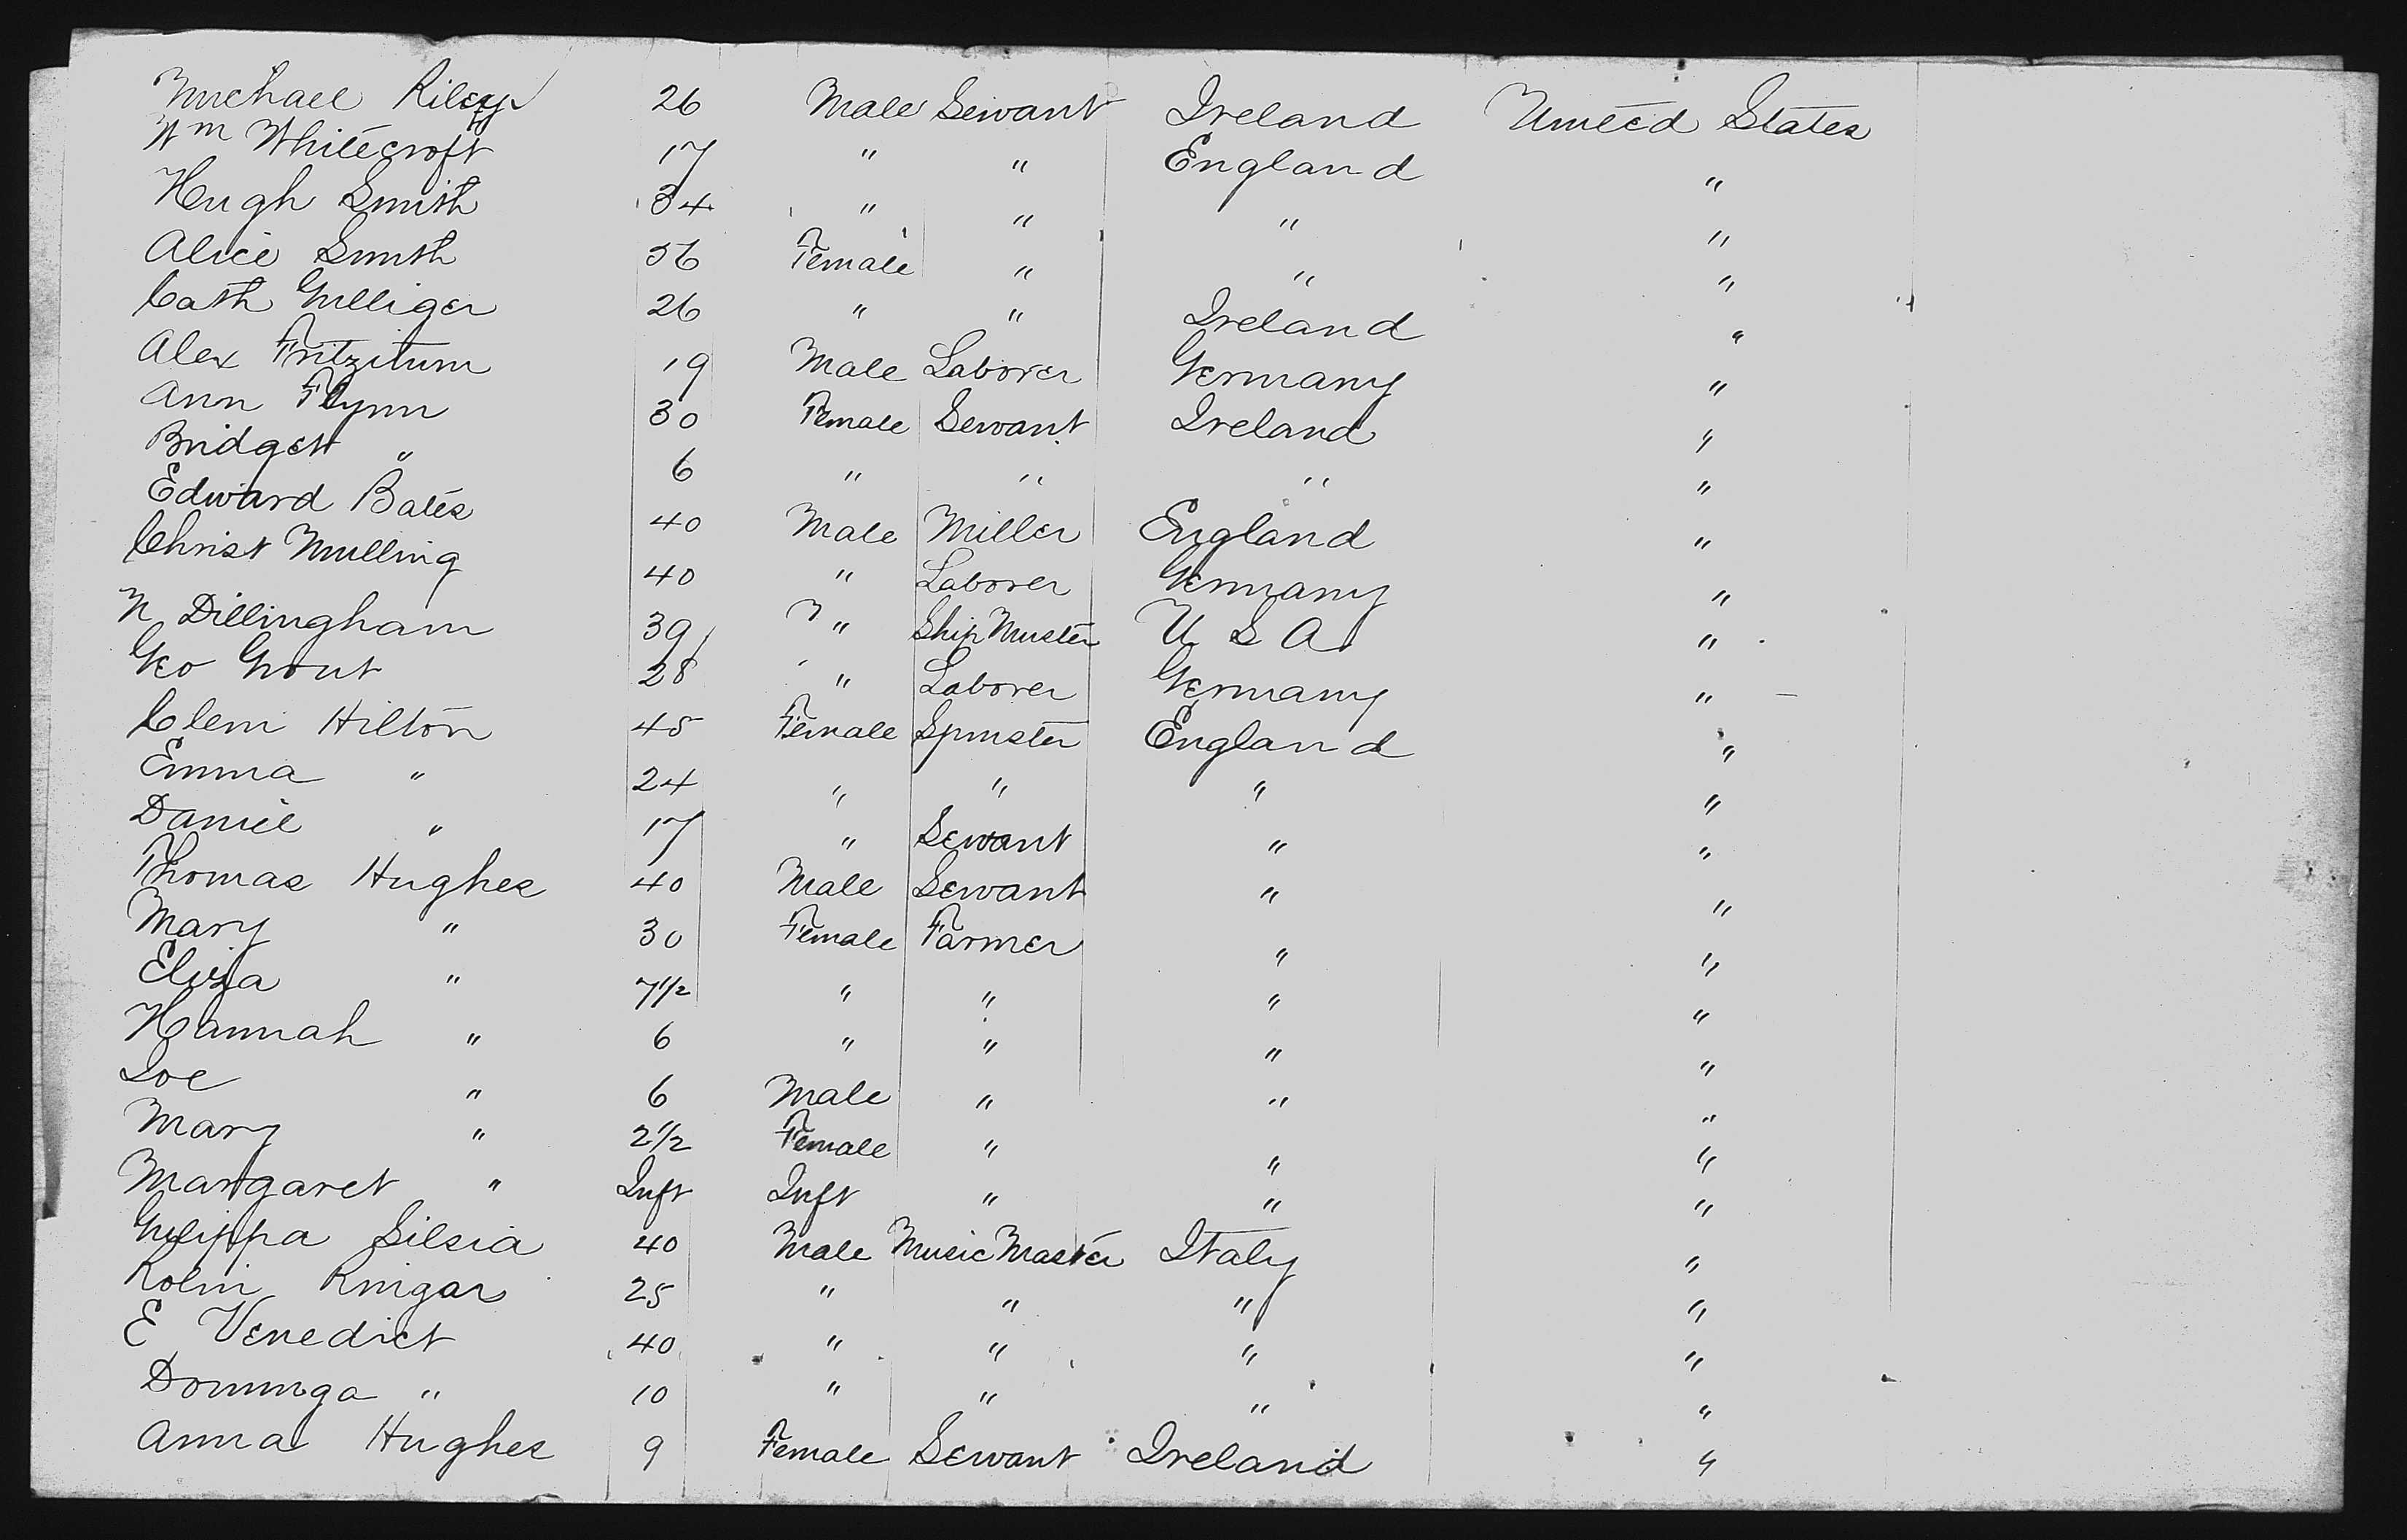 Michael Riley 26 Male Servant Ireland United States
Wm Whitecroft 17 " " England "
Hugh Smith 34 " " " "
Alice Smith 36 Female " " "
Cath Gilliger 26 " " Ireland "
Alex Fritzitum 19 Male Laborer Germany "
Ann Flynn 30 Female Servant Ireland "
Bridget " 6 " " " "
Edward Bates 40 Male Miller England "
Christ Mulling 40 " Laborer Germany "
N Dillingham 39 " Ship Master U S A "
Geo Grout 28 " Laborer Germany "
Clem Hilton 45 Female Spinster England "
Emma " 24 " " " "
Daniel " 17 " Servant " "
Thomas Hughes 40 Male Servant " "
Mary " 30 Female Farmer " "
Eliza " 7 1/2 " " " "
Hannah " 6 " " " "
Joe " 6 Male " " "
Mary " 2 1/2 Female " " "
Margaret " Inft Inft " " "
Silsia 40 Male Music Master Italy "
25 " " " "
E Venedict 40 " " " "
Dominga " 10 " " " "
Anna Hughes 9 Female Servant Ireland "